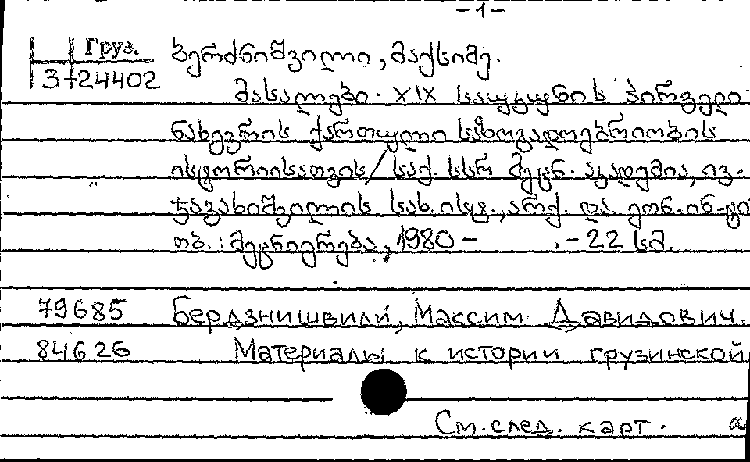 -1-
Груз.
3-24402
ბერძნიშვილი, მაქსიმე.
მასალები XIX საუკუნის პირველი
ნახევრის ქართული საზოგადოებრიობის
ისტორიისათვის / საქ. სსრ მეცნ. აკადემია, ივ.
ჯავახიშვილის სახ. ისტ., არქ. და ეთნ. ინ-ტი
თბ.: მეცნიერება, 1980 - . - 22 სმ.
79685 Бердзнишвили, Максим Давидович.
84626 Материалы к истории грузинской
См. след. карт.